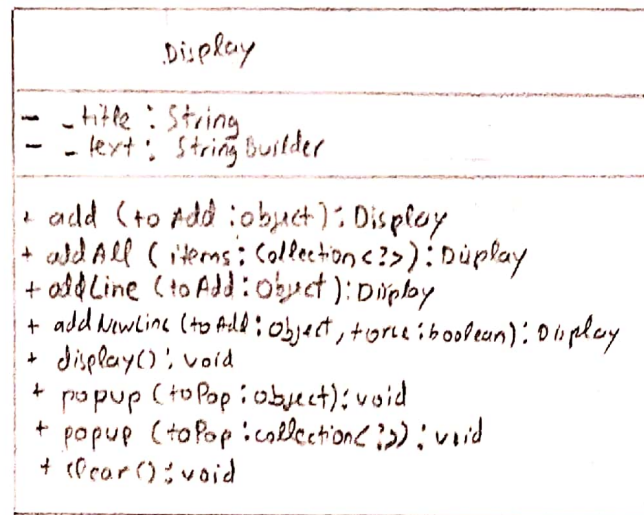 Display
- _title : String
- _text : StringBuilder
+ add (toAdd : object) : Display
+ addAll (items : Collection<?>) : Display
+ addLine (toAdd : Object) : Display
+ addNewLine (toAdd : object, force : boolean) : Display
+ display() : void
+ popup (toPop : object) : void
+ popup (toPop : collection<?>) : void
+ clear() : void